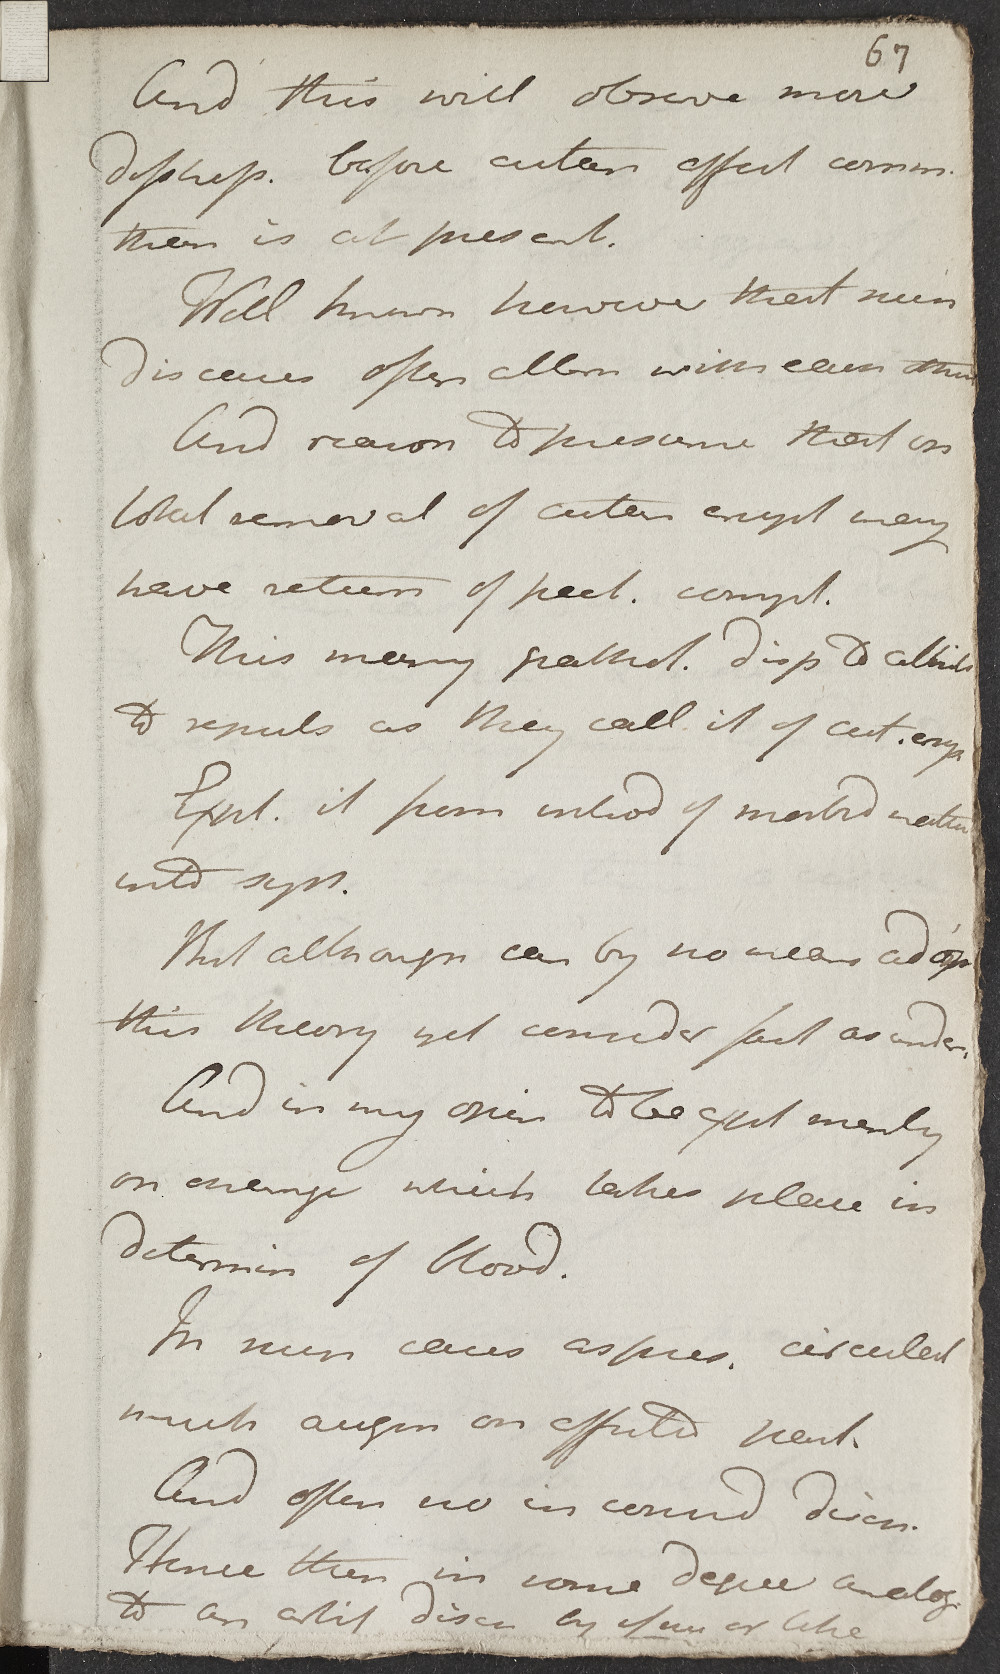 67
And this will observe more
dyspep. before cutan effect comm.
then is at present.
Well known however that
diseases often altern with each
And reason to presume that on
total removal of cutan erupt may
have return of pect. compl.
This many pathol. disp to
to repuls as they call it of cut. erup
Expl. it from introd of morbid matter
into syst.
But although can by no means adop
this theory yet consider fact as under.
And in my opin to be expl merely
on change which takes place in
determin of blood.
In cases as pres. circulat
much augm on affected part.
And often no in consid disch.
Hence then in some degree analog.
to an artif disch by or like